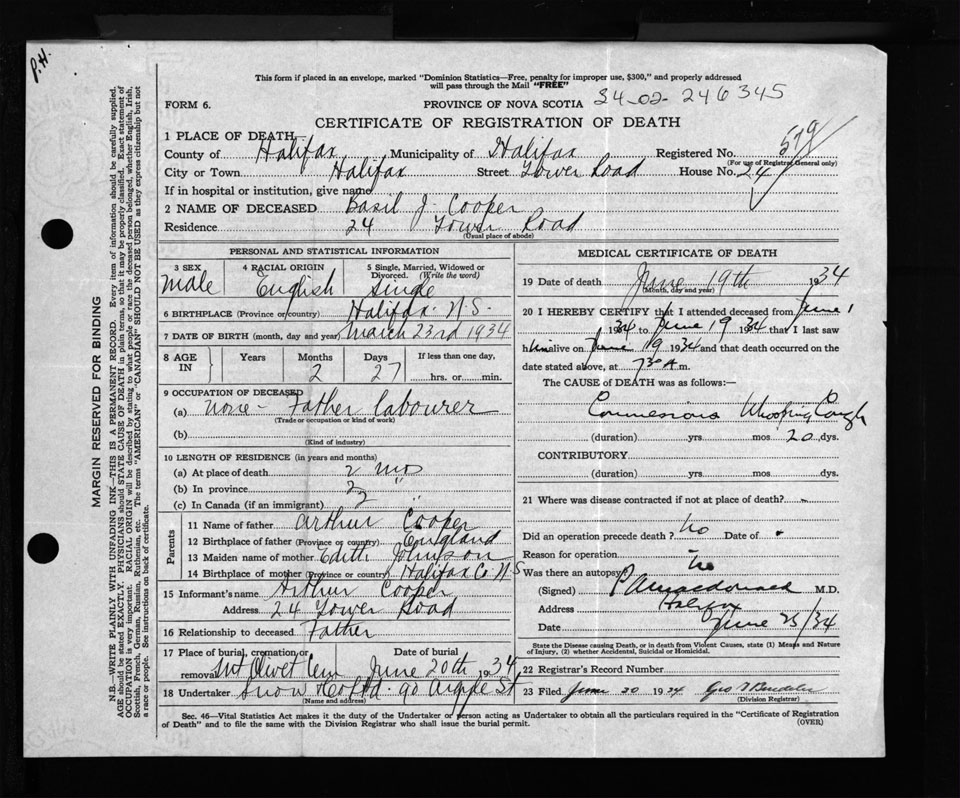 P.H.
This form if placed in an envelope, marked "Dominion Statistics—Free, penalty for improper use, $300," and properly addressed
will pass through the Mail "FREE"
FORM 6. PROVINCE OF NOVA SCOTIA 34-02-246345
CERTIFICATE OF REGISTRATION OF DEATH
1 PLACE OF DEATH 579
County of Halifax Municipality of Halifax Registered No.
(For use of Registrar General only)
City or Town Halifax Street Tower Road House No. 24
If in hospital or institution, give name
2 NAME OF DECEASED Basil J. Cooper
Residence 24 Tower Road
(Usual place of abode)
PERSONAL AND STATISTICAL INFORMATION
3 SEX 4 RACIAL ORIGIN 5 Single, Married, Widowed or Divorced. (Write the word)
Male English Single
6 BIRTHPLACE (Province or country) Halifax N.S.
7 DATE OF BIRTH (month, day and year) March 23rd 1934
8 AGE IN Years Months Days If less than one day,
2 27 hrs. or min.
9 OCCUPATION OF DECEASED
(a) None - Father labourer
(Trade or occupation or kind of work)
(b)
(Kind of industry)
10 LENGTH OF RESIDENCE (in years and months)
(a) At place of death 2 mos
(b) In province 2 "
(c) In Canada (if an immigrant)
Parents
11 Name of father Arthur Cooper
12 Birthplace of father (Province or country) England
13 Maiden name of mother Edith Johnson
14 Birthplace of mother (Province or country) Halifax Co. N S
15 Informant's name Arthur Cooper
Address 24 Tower Road
16 Relationship to deceased Father
17 Place of burial, cremation or removal Date of burial
Mt Olivet Cem June 20th 1934
18 Undertaker Snow & Co Ltd. 90 Argyle St
(Name and address)
MEDICAL CERTIFICATE OF DEATH
19 Date of death June 19th 1934
(Month, day and year)
20 I HEREBY CERTIFY that I attended deceased from June 1
1934 to June 19 1934 that I last saw
him alive on June 19 1934 and that death occurred on the
date stated above, at 7 30 A m.
The CAUSE of DEATH was as follows:—
Whooping Cough
(duration) yrs. mos 20 dys.
CONTRIBUTORY
(duration) yrs. mos. dys.
21 Where was disease contracted if not at place of death?
Did an operation precede death? No Date of
Reason for operation
Was there an autopsy? No
(Signed) Macdonald M.D.
Address Halifax
Date June 25/34
State the Disease causing Death, or in death from Violent Causes, state (1) Means and Nature
of Injury, (2) whether Accidental, Suicidal or Homicidal.
22 Registrar's Record Number
23 Filed June 30 1934 Geo
(Division Registrar)
Sec. 46—Vital Statistics Act makes it the duty of the Undertaker or person acting as Undertaker to obtain all the particulars required in the "Certificate of Registration
of Death" and to file the same with the Division Registrar who shall issue the burial permit. (OVER)
MARGIN RESERVED FOR BINDING
N.B.—WRITE PLAINLY WITH UNFADING INK—THIS IS A PERMANENT RECORD. Every item of information should be carefully supplied.
AGE should be stated EXACTLY. PHYSICIANS should STATE CAUSE OF DEATH in plain terms, so that it may be properly classified. Exact statement of
OCCUPATION is very important. RACIAL ORIGIN will be described by stating to what people or race the deceased person belonged, whether English, Irish,
Scottish, French, German, Russian, Ruthenian, etc. The terms "AMERICAN" or "CANADIAN" SHOULD NOT BE USED as they express citizenship but not
a race or people. See instructions on back of certificate.